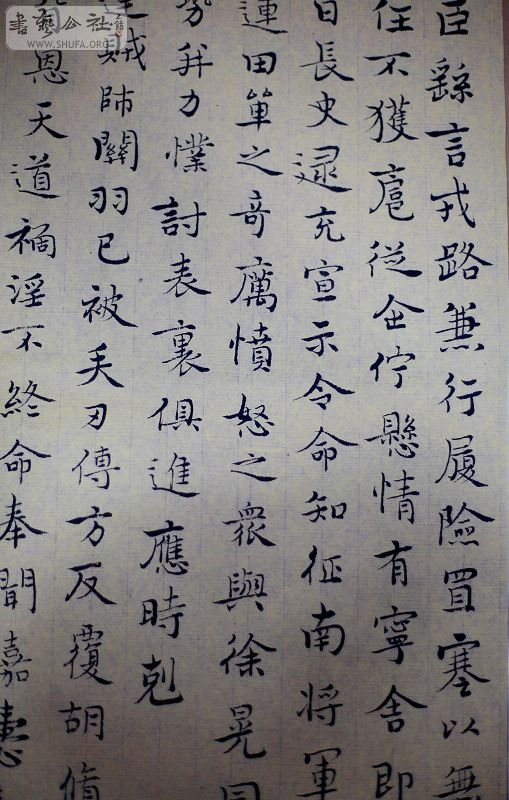 書藝公社
WWW.SHUFA.ORG
臣繇言戎路兼行履險冒寒以無
任不獲扈從企佇懸情有寧舍即
日長史逯充宣示令命知征南将軍
運田單之奇厲憤怒之衆與徐晃同
勢并力撲討表裏俱進應時剋
逆賊帥關羽已被矢刃傅方反覆胡脩
恩天道禍淫不終命奉聞嘉憙